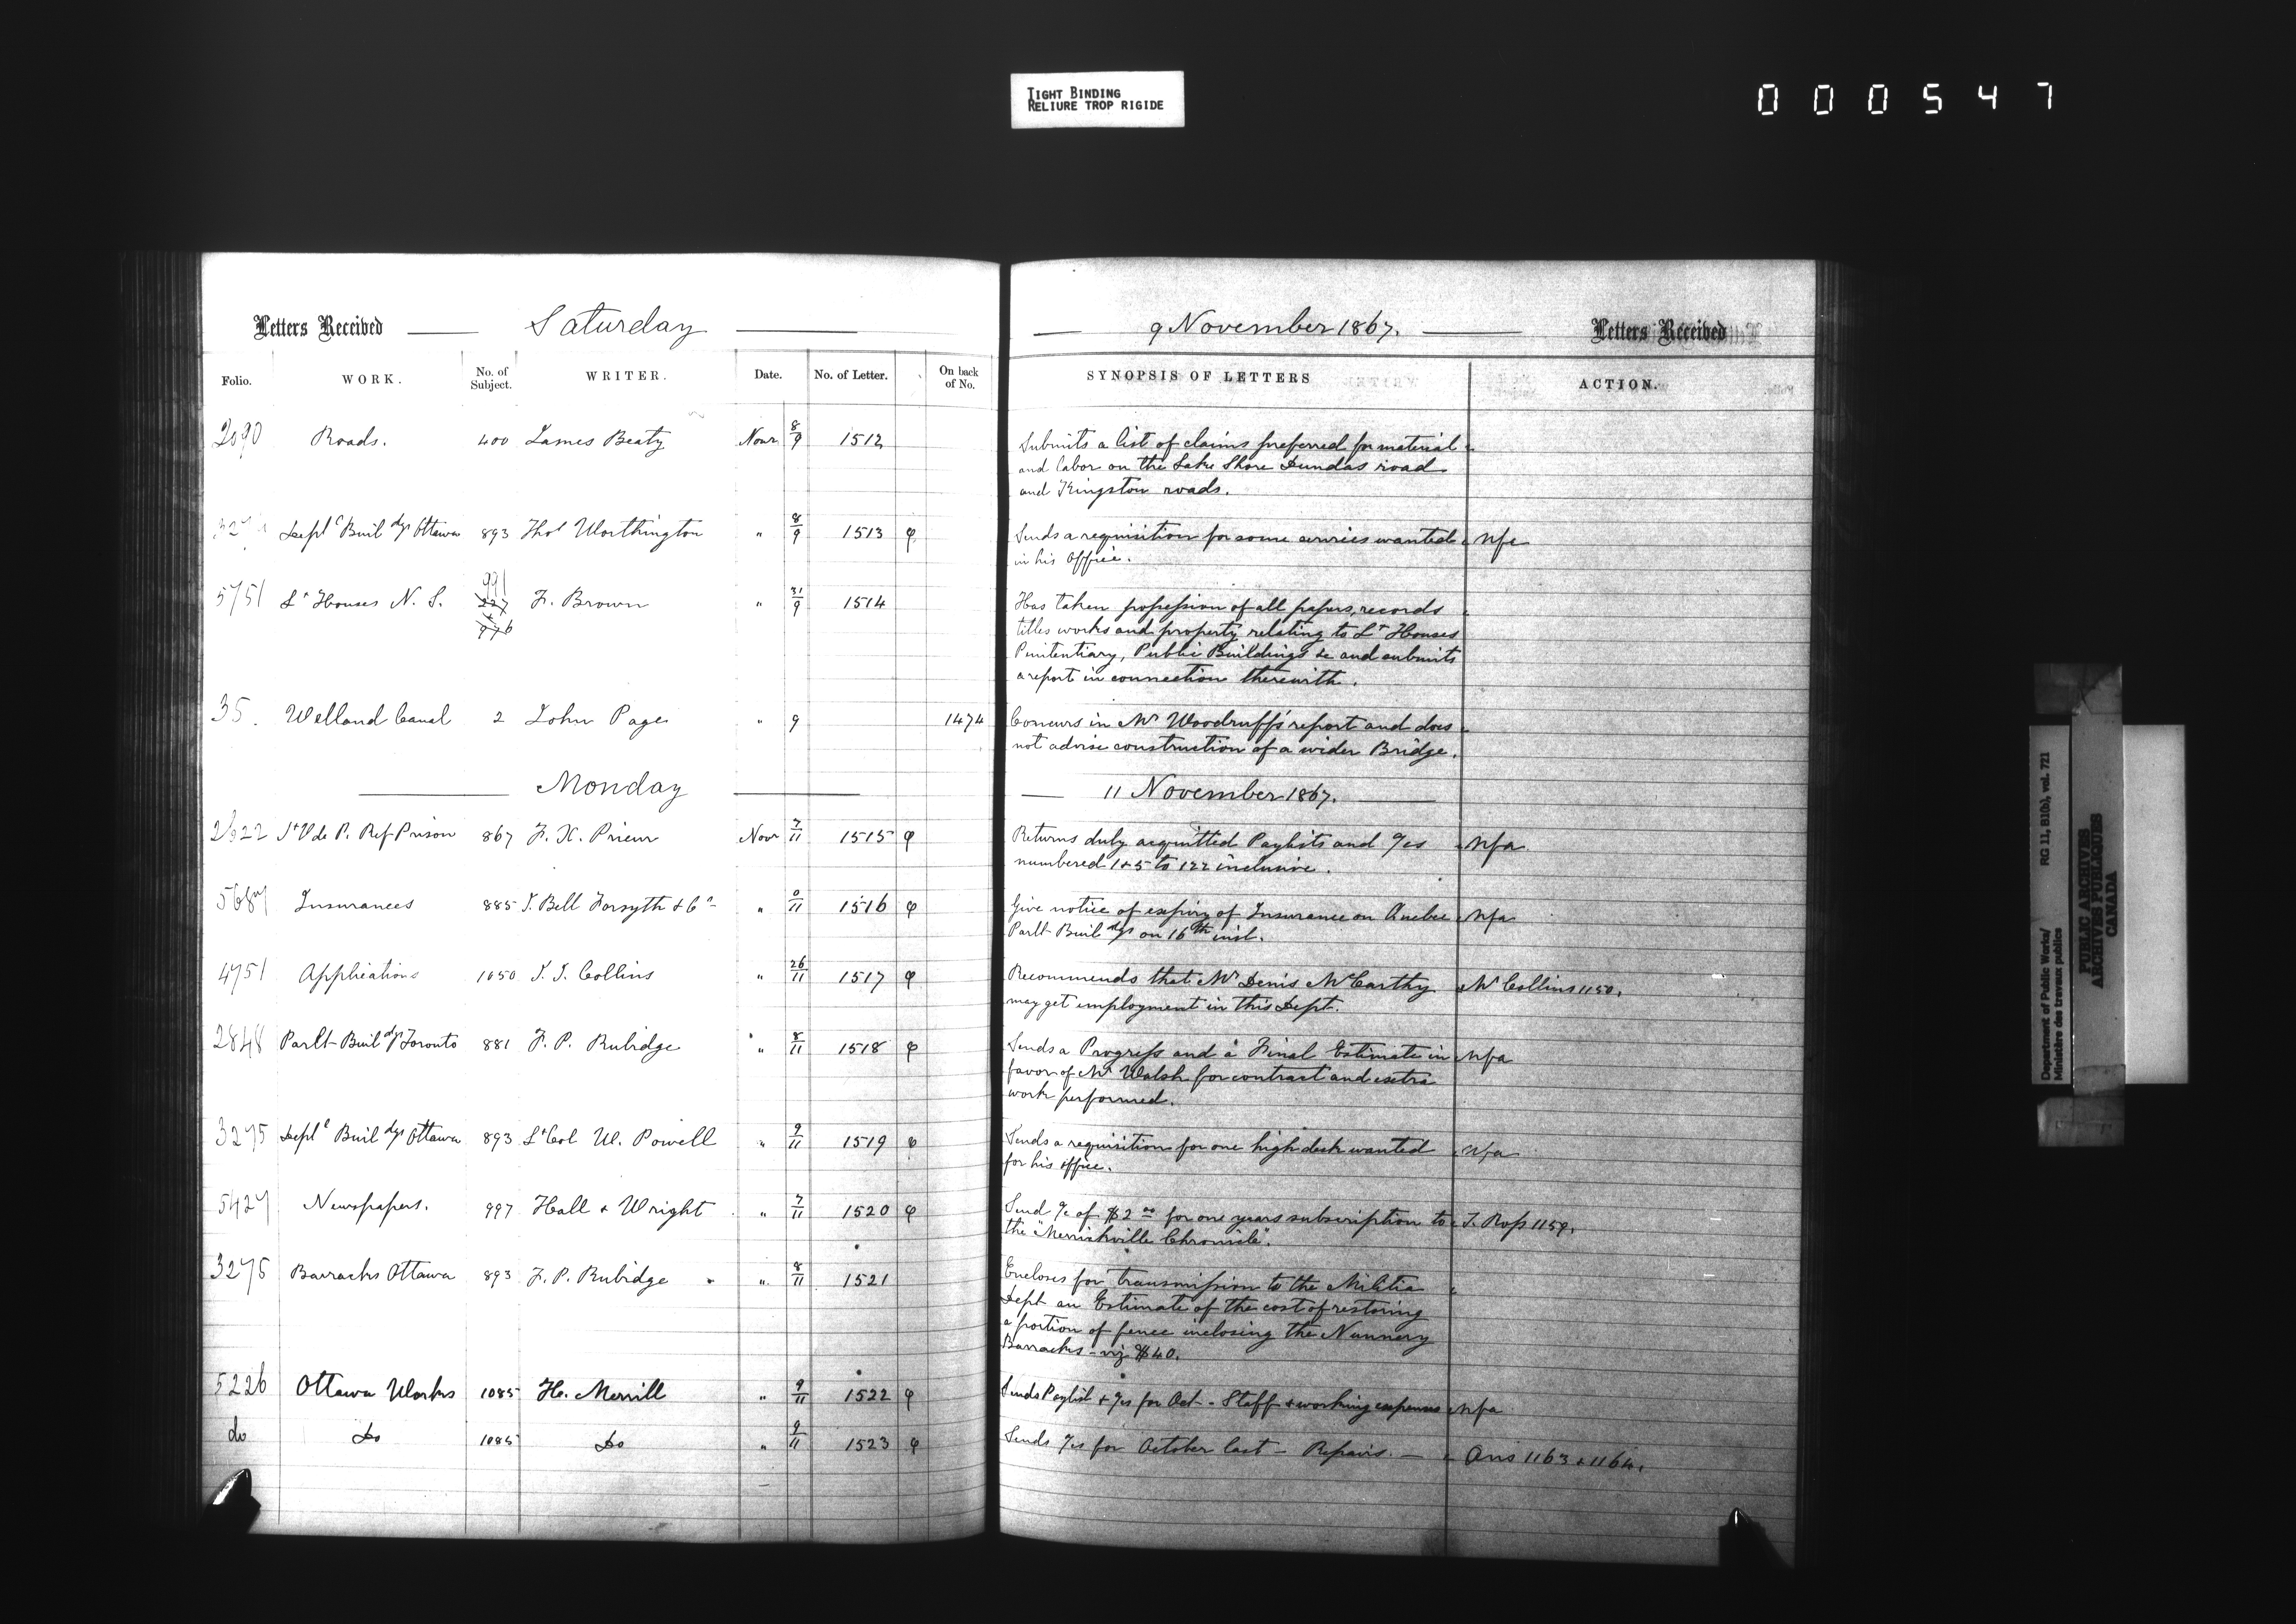 TIGHT BINDING
RELIURE TROP RIGIDE
000547
Letters Received Saturday
Folio. WORK. No. of Subject. WRITER. Date. No. of Letter. On back of No.
2090 Roads. 400 James Beaty Novr 8/9 1512
Deptl Buildgs Ottawa 893 Thos Worthington " 8/9 1513 φ
5751 Lt Houses N. S. 991 F. Brown " 31/9 1514
227
+
976
35. Welland Canal 2 John Page " 9 1474
Monday
2822 St V de P. Ref Prison 867 F. X. Prieur Novr 7/11 1515 φ
5687 Insurances 885 J. Bell Forsyth & Co " 0/11 1516 φ
4751 Applications 1050 J. J. Collins " 26/11 1517 φ
2848 Parlt Buildgs Toronto 881 F. P. Rubidge " 8/11 1518 φ
3275 Deptl Buildgs Ottawa 893 Lt Col W. Powell " 9/11 1519 φ
5427 Newspapers. 997 Hall & Wright " 7/11 1520 φ
3275 Barracks Ottawa 893 F. P. Rubidge " 8/11 1521
5226 Ottawa Works 1085 H. Merrill " 9/11 1522 φ
do Do 1085 Do " 9/11 1523 φ
9 November 1867. Letters Received
SYNOPSIS OF LETTERS ACTION.
Submits a list of claims preferred for material
and labor on the Lake Shore Dundas road
and Kingston roads.
Sends a requisition for some services wanted Nfa
in his Office.
Has taken possession of all papers, records
titles works and property relating to Lt Houses
Penitentiary, Public Buildings &c and submits
a report in connection therewith.
Concurs in Mr Woodruff's report and does
not advise construction of a wider Bridge.
11 November 1867.
Returns duly acquitted Paylists and %cs Nfa
numbered 1 & 5 to 122 inclusive.
Give notice of expiry of Insurance on Quebec Nfa
Parlt Buildgs on 16th inst.
Recommends that Mr Denis McCarthy Mr Collins 1150.
may get employment in this Dept.
Sends a Progress and a Final Estimate in Nfa
favor of Mr Walsh for contract and extra
work performed.
Sends a requisition for one high desk wanted Nfa
for his office.
Send %c of $2 00 for one years subscription to J. Ross 1159.
the "Merrickville Chronicle".
Encloses for transmission to the Militia
Dept an Estimate of the cost of restoring
a portion of fence inclosing the Nunnery
Barracks - viz $40.
Sends Paylist & %cs for Oct - Staff & working expenses Nfa
Sends %cs for October last - Repairs. — Ans 1163 & 1164.
Department of Public Works/ RG 11, B1(b), vol. 721
Ministère des travaux publics
PUBLIC ARCHIVES
ARCHIVES PUBLIQUES
CANADA